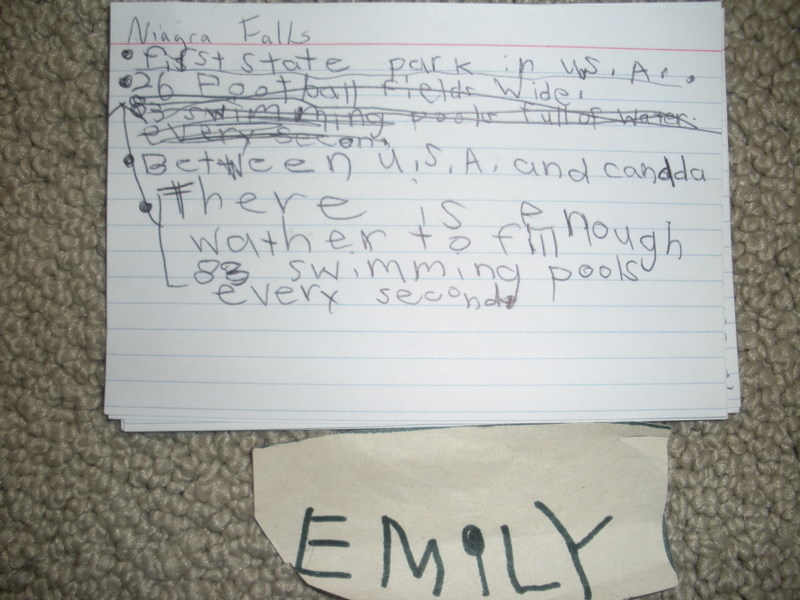 Niagra Falls
• First state park in U.S.A..
• 26 Football fields wide.
83 swimming pools full of water
every second
• Between U.S.A. and canada
• There is enough
wather to fill
83 swimming pools
every second
EMILY